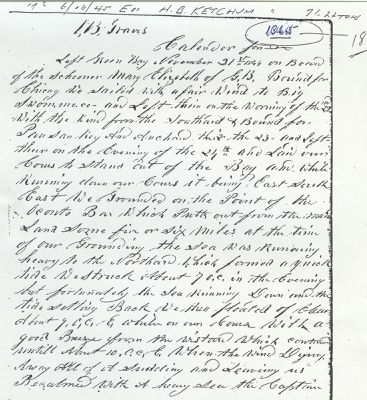 6/16/45 E11 H.B. KETCHUM 71.22 TOM
J.B. Travis 1845
Calender for 18
Left Green Bay November 21st 1844 on Board
of the Schooner Mary Elizabeth of G.B. Bound for
Chicag We Sailed with a fair Wind to Big
and Left their on the Morning of the 23
With the Wind from the Southard & Bound for
and Anchard thir the 23 and Left
their on the Evening of the 24th and Lain our
Cours to Stand out of the Bay and While
Running down our Cours it being East South
East We Grounded on the Point of the
Bar Which Putts out from the Main
Land Some five or Six Miles at the time
of our Grounding the Sea was Running
heavy to the Northard Which formed a quick
tide We Struck About 7 oc. in the Evening
but fortunately the Sea Running Down and the
tide Setting Back We then floated of Clear
About 9 o, C, E, While on our Cours With a
good Breeze from the Which
untill About 10. o, c, E, When the Wind Dying
Away All of A Sudding and Leaving us
Becalmed With A heavy Sea the Captain